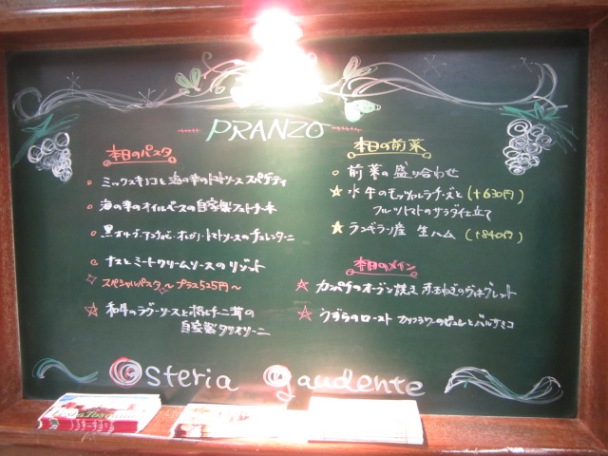 PRANZO
本日のパスタ
ミックスキノコと海の幸のトマトソース スパゲティ
海の幸のオイルベースの自家製フェトチーネ
黒オリーブ・アンチョビ・オレガノ・トマトソースの
ナスとミートクリームソースのリゾット
スペシャルパスタ〜プラス525円〜
和牛のラグーソースとポルチーニ茸の
自家製タリオリーニ
本日の前菜
前菜の盛り合わせ
水牛のモッツァレラチーズと (+630円)
フルーツトマトのサラダ仕立て
ランギラン産 生ハム (+840円)
本日のメイン
カンパチのオーブン焼き 赤玉ねぎのヴィネグレット
うずらのロースト カリフラワーのピュレとバルサミコ
Osteria Gaudente